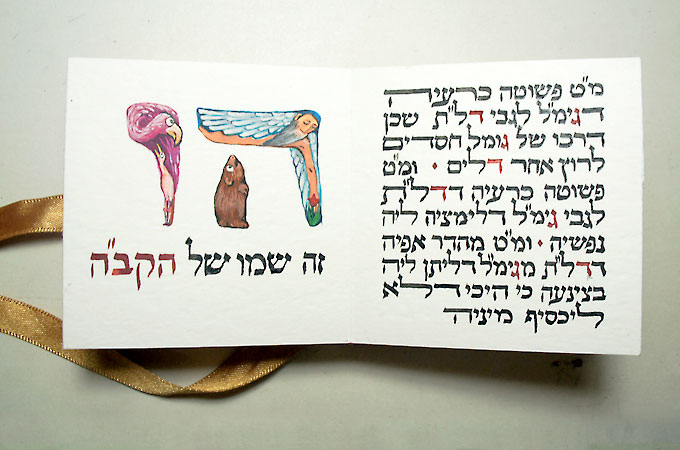 מ"ט פשוטה כרעיה
דגימ"ל לגבי דל"ת שכן
דרכו של גומל חסדים
לרוץ אחר דלים · ומ"ט
פשוטה כרעיה דדל"ת
לגבי גימ"ל דלימציה ליה
נפשיה · ומ"ט מהדר אפיה
דדל"ת מגימ"ל דליתן ליה
בצינעה כי היכי דלא
ליכסיף מיניה
הו
זה שמו של הקב"ה